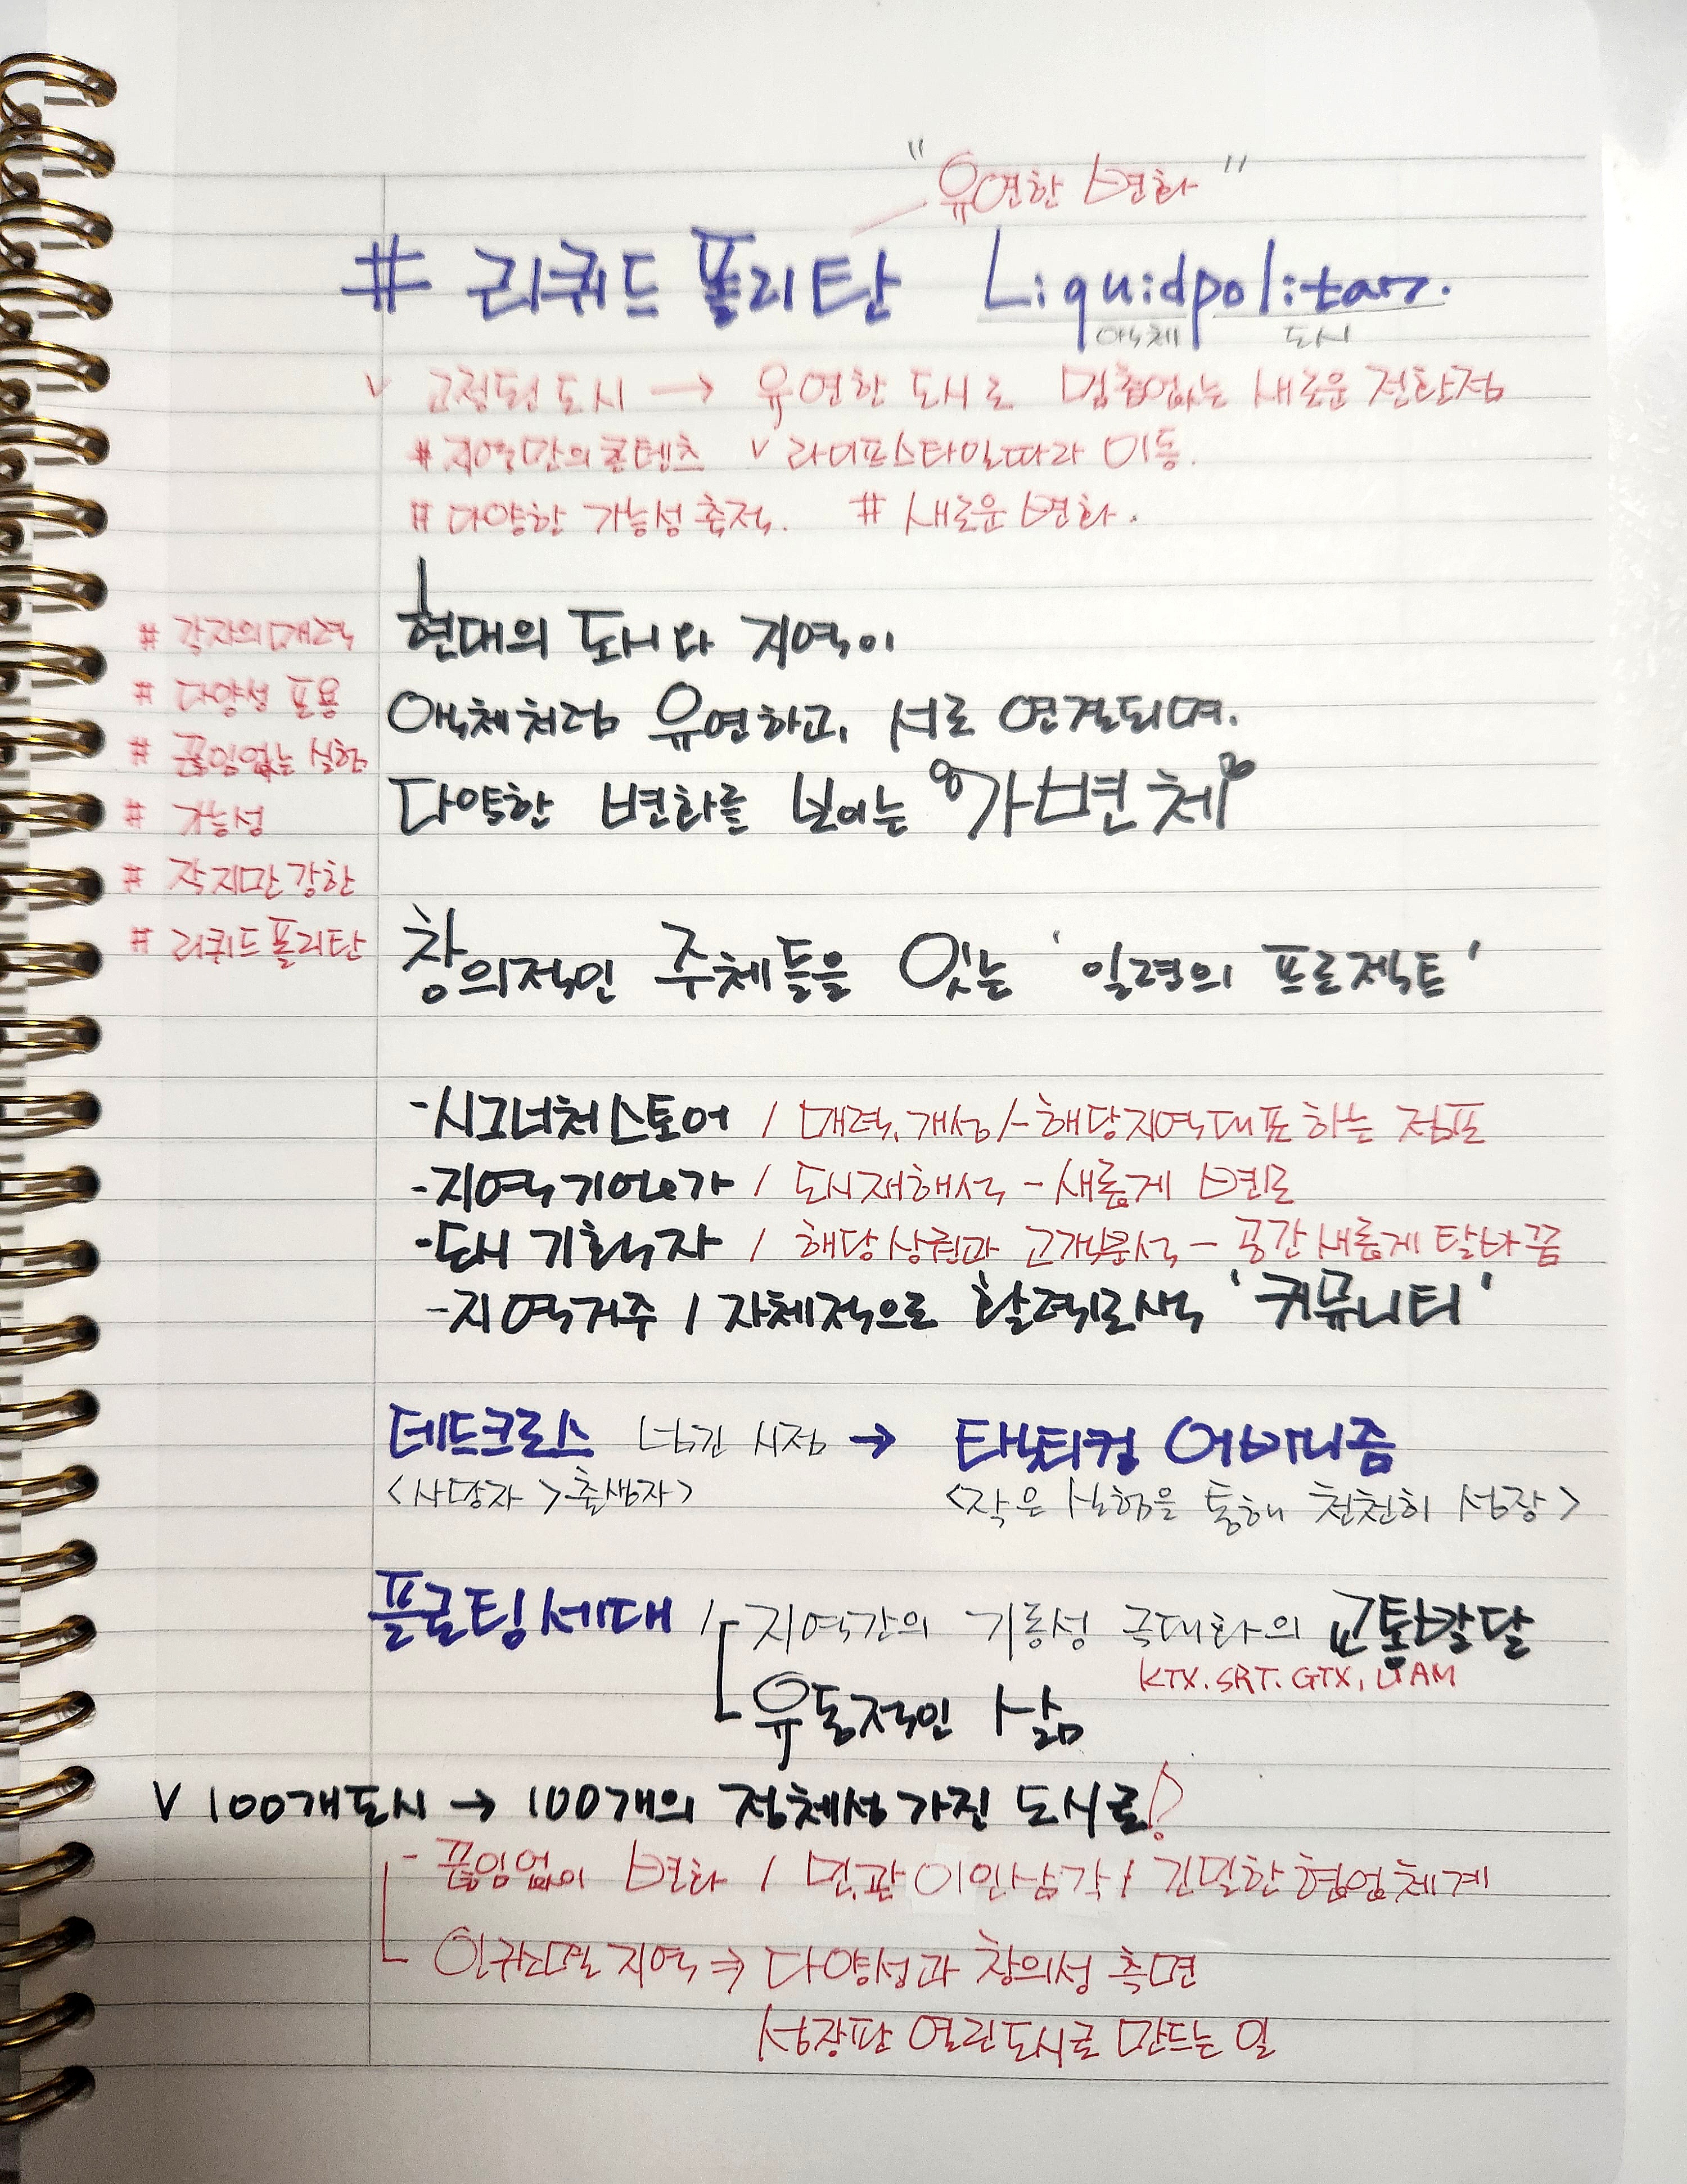 " 유연한 변화 "
# 리퀴드 폴리탄 Liquidpolitan.
액체 도시
v 고정된 도시 → 유연한 도시로 멈춤없는 새로운 전환점
# 지역만의 콘텐츠 v 라이프스타일따라 이동.
# 다양한 가능성 축적. # 새로운 변화.
# 각자의 매력 현대의 도시와 지역이
# 다양성 포용 액체처럼 유연하고, 서로 연결되며.
# 끊임없는 실험
# 가능성 다양한 변화를 보이는 "가변체"
# 작지만 강한
# 리퀴드 폴리탄 창의적인 주체들을 잇는 '일련의 프로젝트'
-시그너처스토어 / 매력, 개성 / - 해당지역 대표하는 점포
-지역기업가 / 도시재해석 - 새롭게 변모
-도시 기획자 / 해당상권과 고객분석 - 공간 새롭게 탈바꿈
-지역거주 / 자체적으로 활력모색 '커뮤니티'
데드크로스 넘긴 시점 → 택티컬 어바니즘
<사망자 > 출생자> <작은 실험을 통해 천천히 성장>
플로팅세대 / 지역간의 기동성 극대화의 교통발달
KTX. SRT. GTX, UAM
유동적인 삶
V 100개도시 → 100개의 정체성 가진 도시로!
- 끊임없이 변화 / 민.관 이인삼각 / 긴밀한 협업체계
인구소멸 지역 ⇒ 다양성과 창의성 측면
성장판 열린도시로 만드는 일